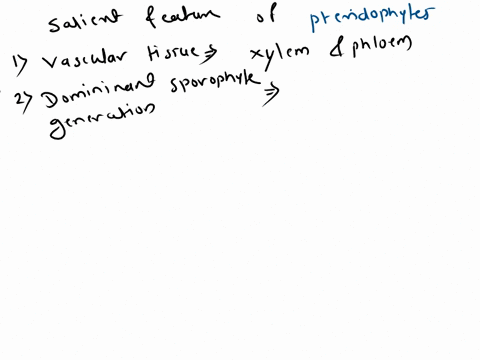 salient feature of pteridophytes
1) Vascular tissue ⇒ xylem & phloem
2) Domininant sporophyte ⇒
generation